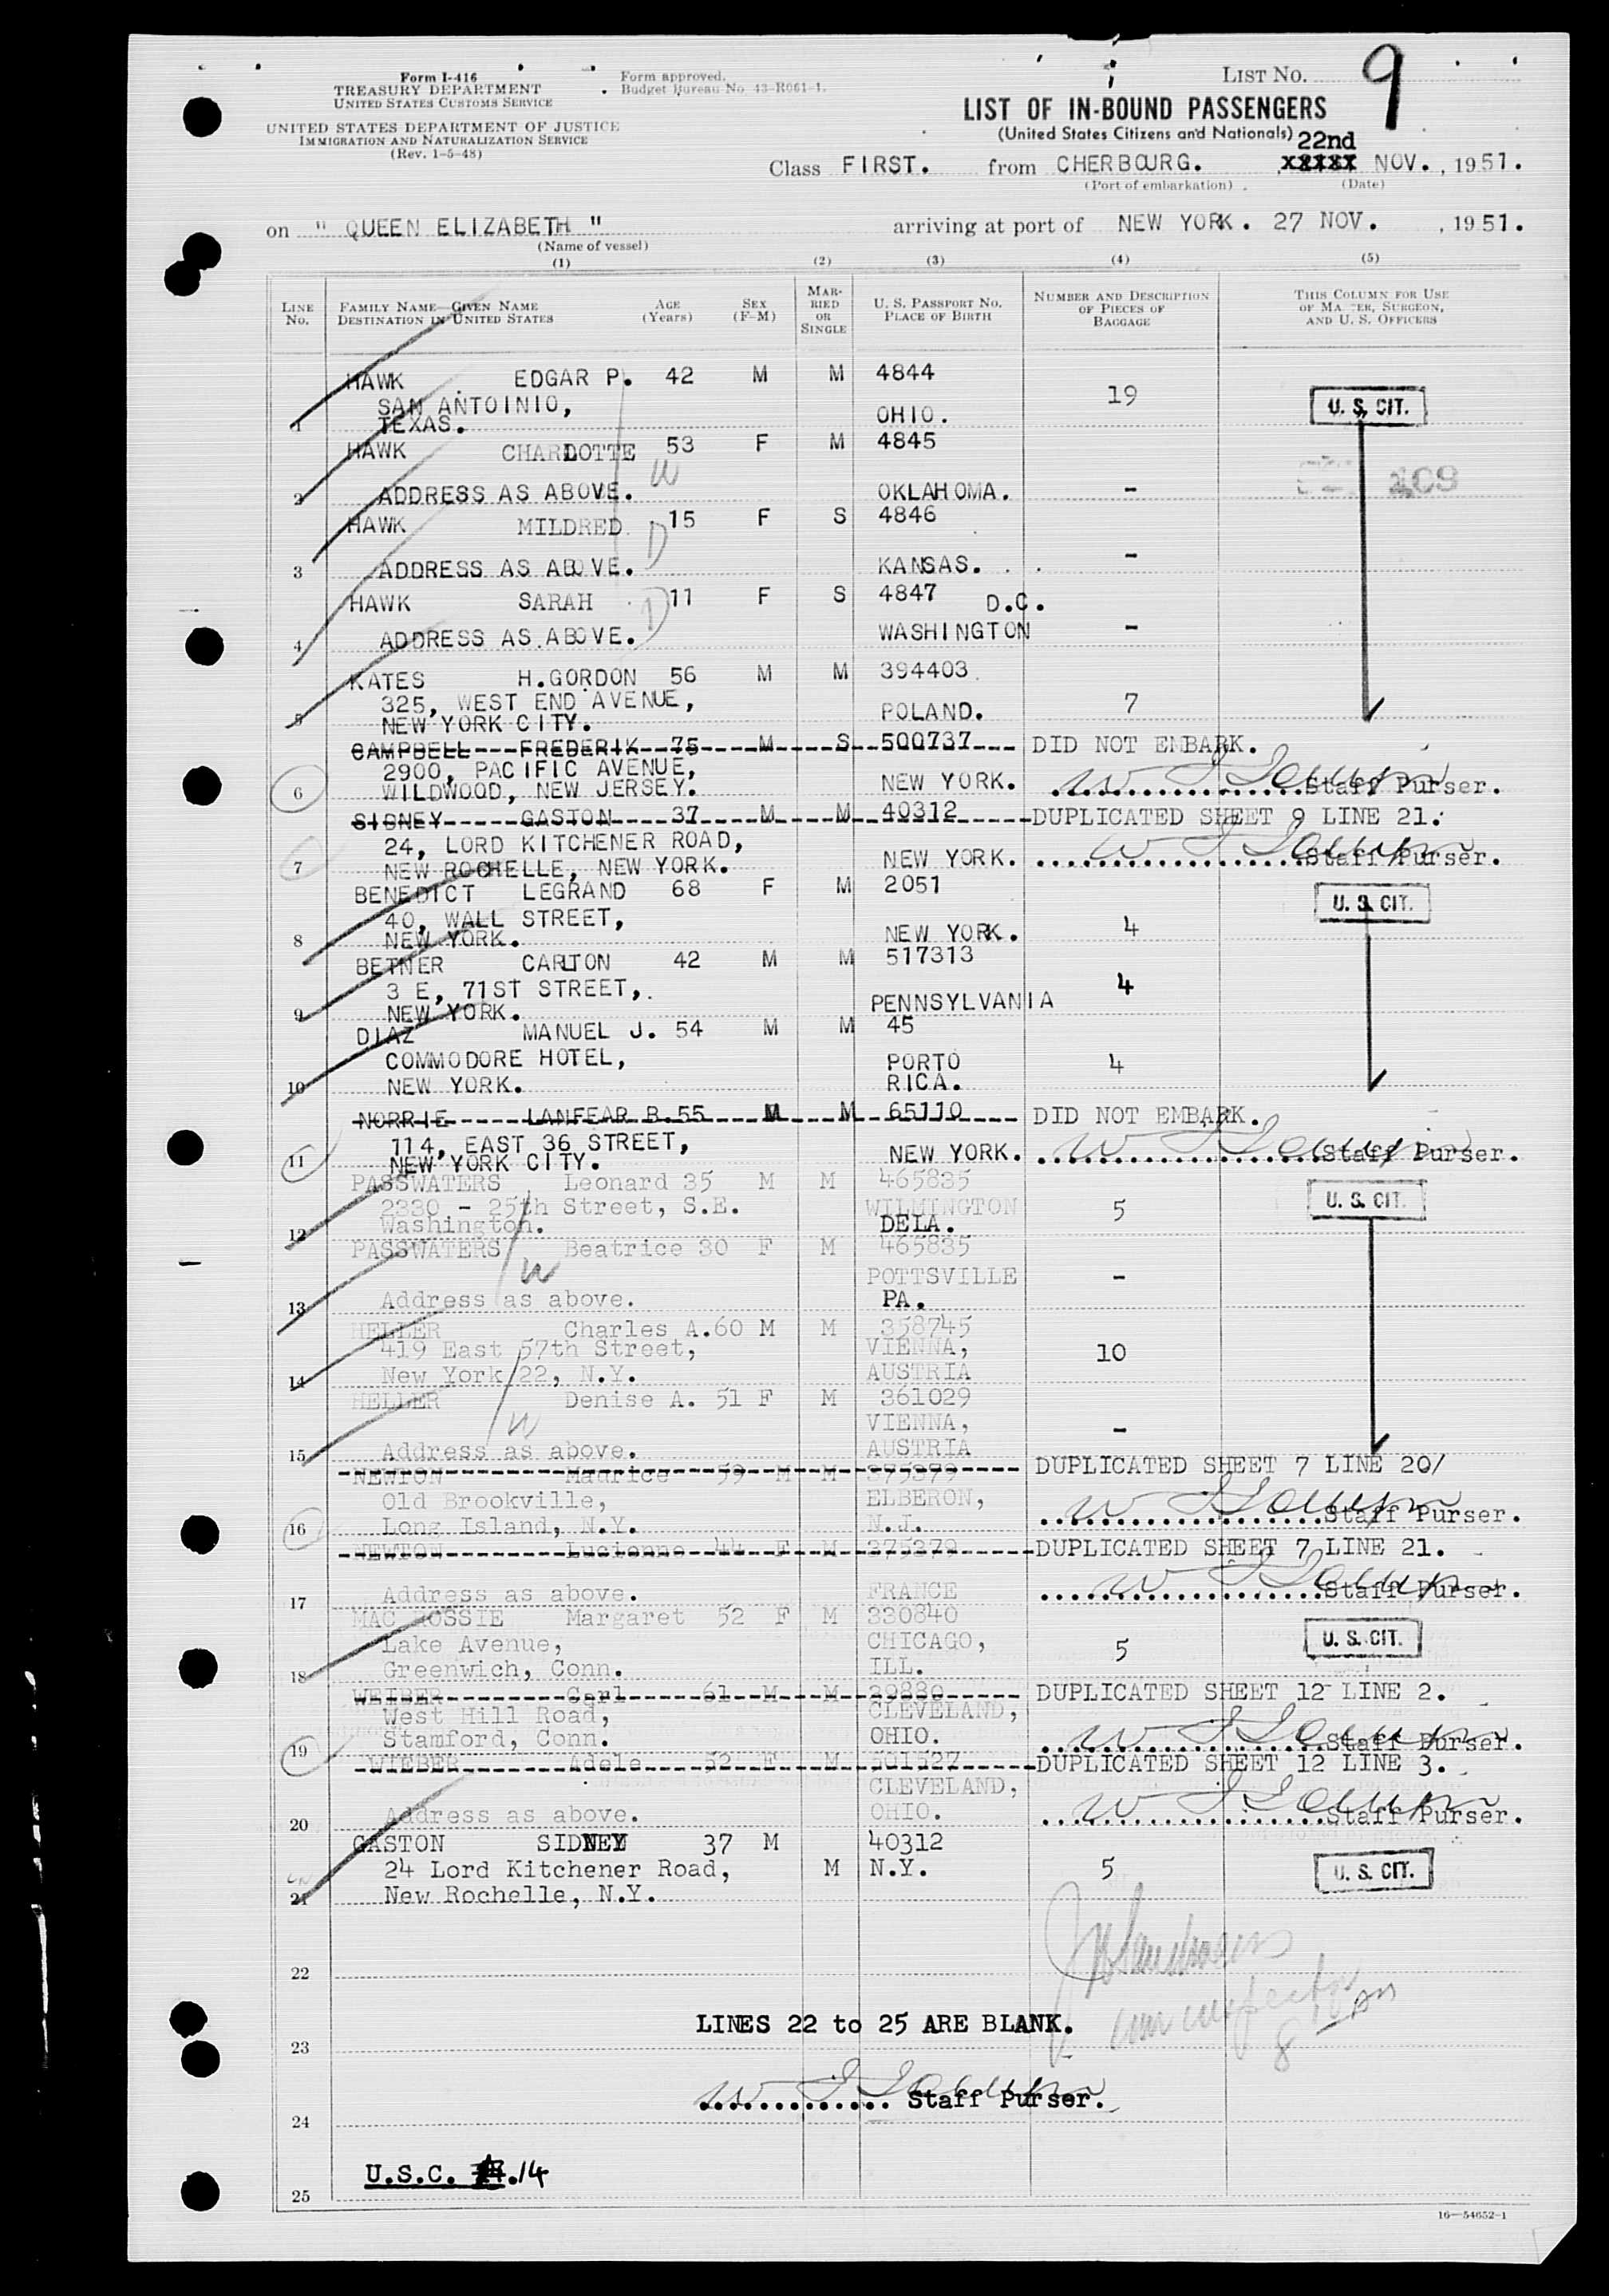 Form I-416
TREASURY DEPARTMENT
UNITED STATES CUSTOMS SERVICE
UNITED STATES DEPARTMENT OF JUSTICE
IMMIGRATION AND NATURALIZATION SERVICE
(Rev. 1-5-48)
Form approved.
Budget Bureau No. 43-R061-1.
LIST No. 9
LIST OF IN-BOUND PASSENGERS
(United States Citizens and Nationals)
22nd
Class FIRST. from CHERBOURG. NOV., 1951.
(Port of embarkation) (Date)
on " QUEEN ELIZABETH " arriving at port of NEW YORK. 27 NOV. , 1951.
(Name of vessel)
(1) (2) (3) (4) (5)
LINE No. FAMILY NAME—GIVEN NAME DESTINATION IN UNITED STATES AGE (Years) SEX (F-M) MARRIED OR SINGLE U. S. PASSPORT NO. PLACE OF BIRTH NUMBER AND DESCRIPTION OF PIECES OF BAGGAGE THIS COLUMN FOR USE OF MASTER, SURGEON, AND U. S. OFFICERS
HAWK EDGAR P. 42 M M 4844 19 U. S. CIT.
SAN ANTOINIO, OHIO.
1 TEXAS.
HAWK CHARLOTTE 53 F M 4845
W
2 ADDRESS AS ABOVE. OKLAHOMA. -
HAWK MILDRED 15 F S 4846
D
3 ADDRESS AS ABOVE. KANSAS. -
HAWK SARAH 11 F S 4847 D.C.
D
4 ADDRESS AS ABOVE. WASHINGTON -
KATES H.GORDON 56 M M 394403
325, WEST END AVENUE, POLAND. 7
5 NEW YORK CITY.
CAMPBELL FREDERIK 75 M S 500737 DID NOT EMBARK.
2900, PACIFIC AVENUE,
6 WILDWOOD, NEW JERSEY. NEW YORK. Staff Purser.
SIDNEY GASTON 37 M M 40312 DUPLICATED SHEET 9 LINE 21.
24, LORD KITCHENER ROAD,
7 NEW ROCHELLE, NEW YORK. NEW YORK. Staff Purser.
BENEDICT LEGRAND 68 F M 2051 U. S. CIT.
40, WALL STREET,
8 NEW YORK. NEW YORK. 4
BETNER CARLTON 42 M M 517313
3 E, 71ST STREET, PENNSYLVANIA 4
9 NEW YORK.
DIAZ MANUEL J. 54 M M 45
COMMODORE HOTEL, PORTO 4
10 NEW YORK. RICA.
NORRIE LANFEAR B. 55 M M 65110 DID NOT EMBARK.
114, EAST 36 STREET,
11 NEW YORK CITY. NEW YORK. Staff Purser.
PASSWATERS Leonard 35 M M 465835 U. S. CIT.
2330 - 25th Street, S.E. WILMINGTON 5
12 Washington. DELA.
PASSWATERS Beatrice 30 F M 465835
W POTTSVILLE -
13 Address as above. PA.
HELLER Charles A. 60 M M 358745
419 East 57th Street, VIENNA, 10
14 New York 22, N.Y. AUSTRIA
HELLER Denise A. 51 F M 361029
W VIENNA, -
15 Address as above. AUSTRIA
NEWTON Maurice 59 M M 375379 DUPLICATED SHEET 7 LINE 20/
Old Brookville, ELBERON,
16 Long Island, N.Y. N.J. Staff Purser.
NEWTON Lucienne 44 F M 375379 DUPLICATED SHEET 7 LINE 21.
17 Address as above. FRANCE Staff Purser.
MAC ROSSIE Margaret 52 F M 330840 U. S. CIT.
Lake Avenue, CHICAGO, 5
18 Greenwich, Conn. ILL.
WEIBER Carl 61 M M 29880 DUPLICATED SHEET 12 LINE 2.
West Hill Road, CLEVELAND,
19 Stamford, Conn. OHIO. Staff Purser.
WIEBER Adele 52 F M 501527 DUPLICATED SHEET 12 LINE 3.
CLEVELAND,
20 Address as above. OHIO. Staff Purser.
GASTON SIDNEY 37 M 40312
24 Lord Kitchener Road, M N.Y. 5 U. S. CIT.
21 New Rochelle, N.Y.
22
LINES 22 to 25 ARE BLANK.
8
23
Staff Purser.
24
U.S.C. 14
25
16—54652-1